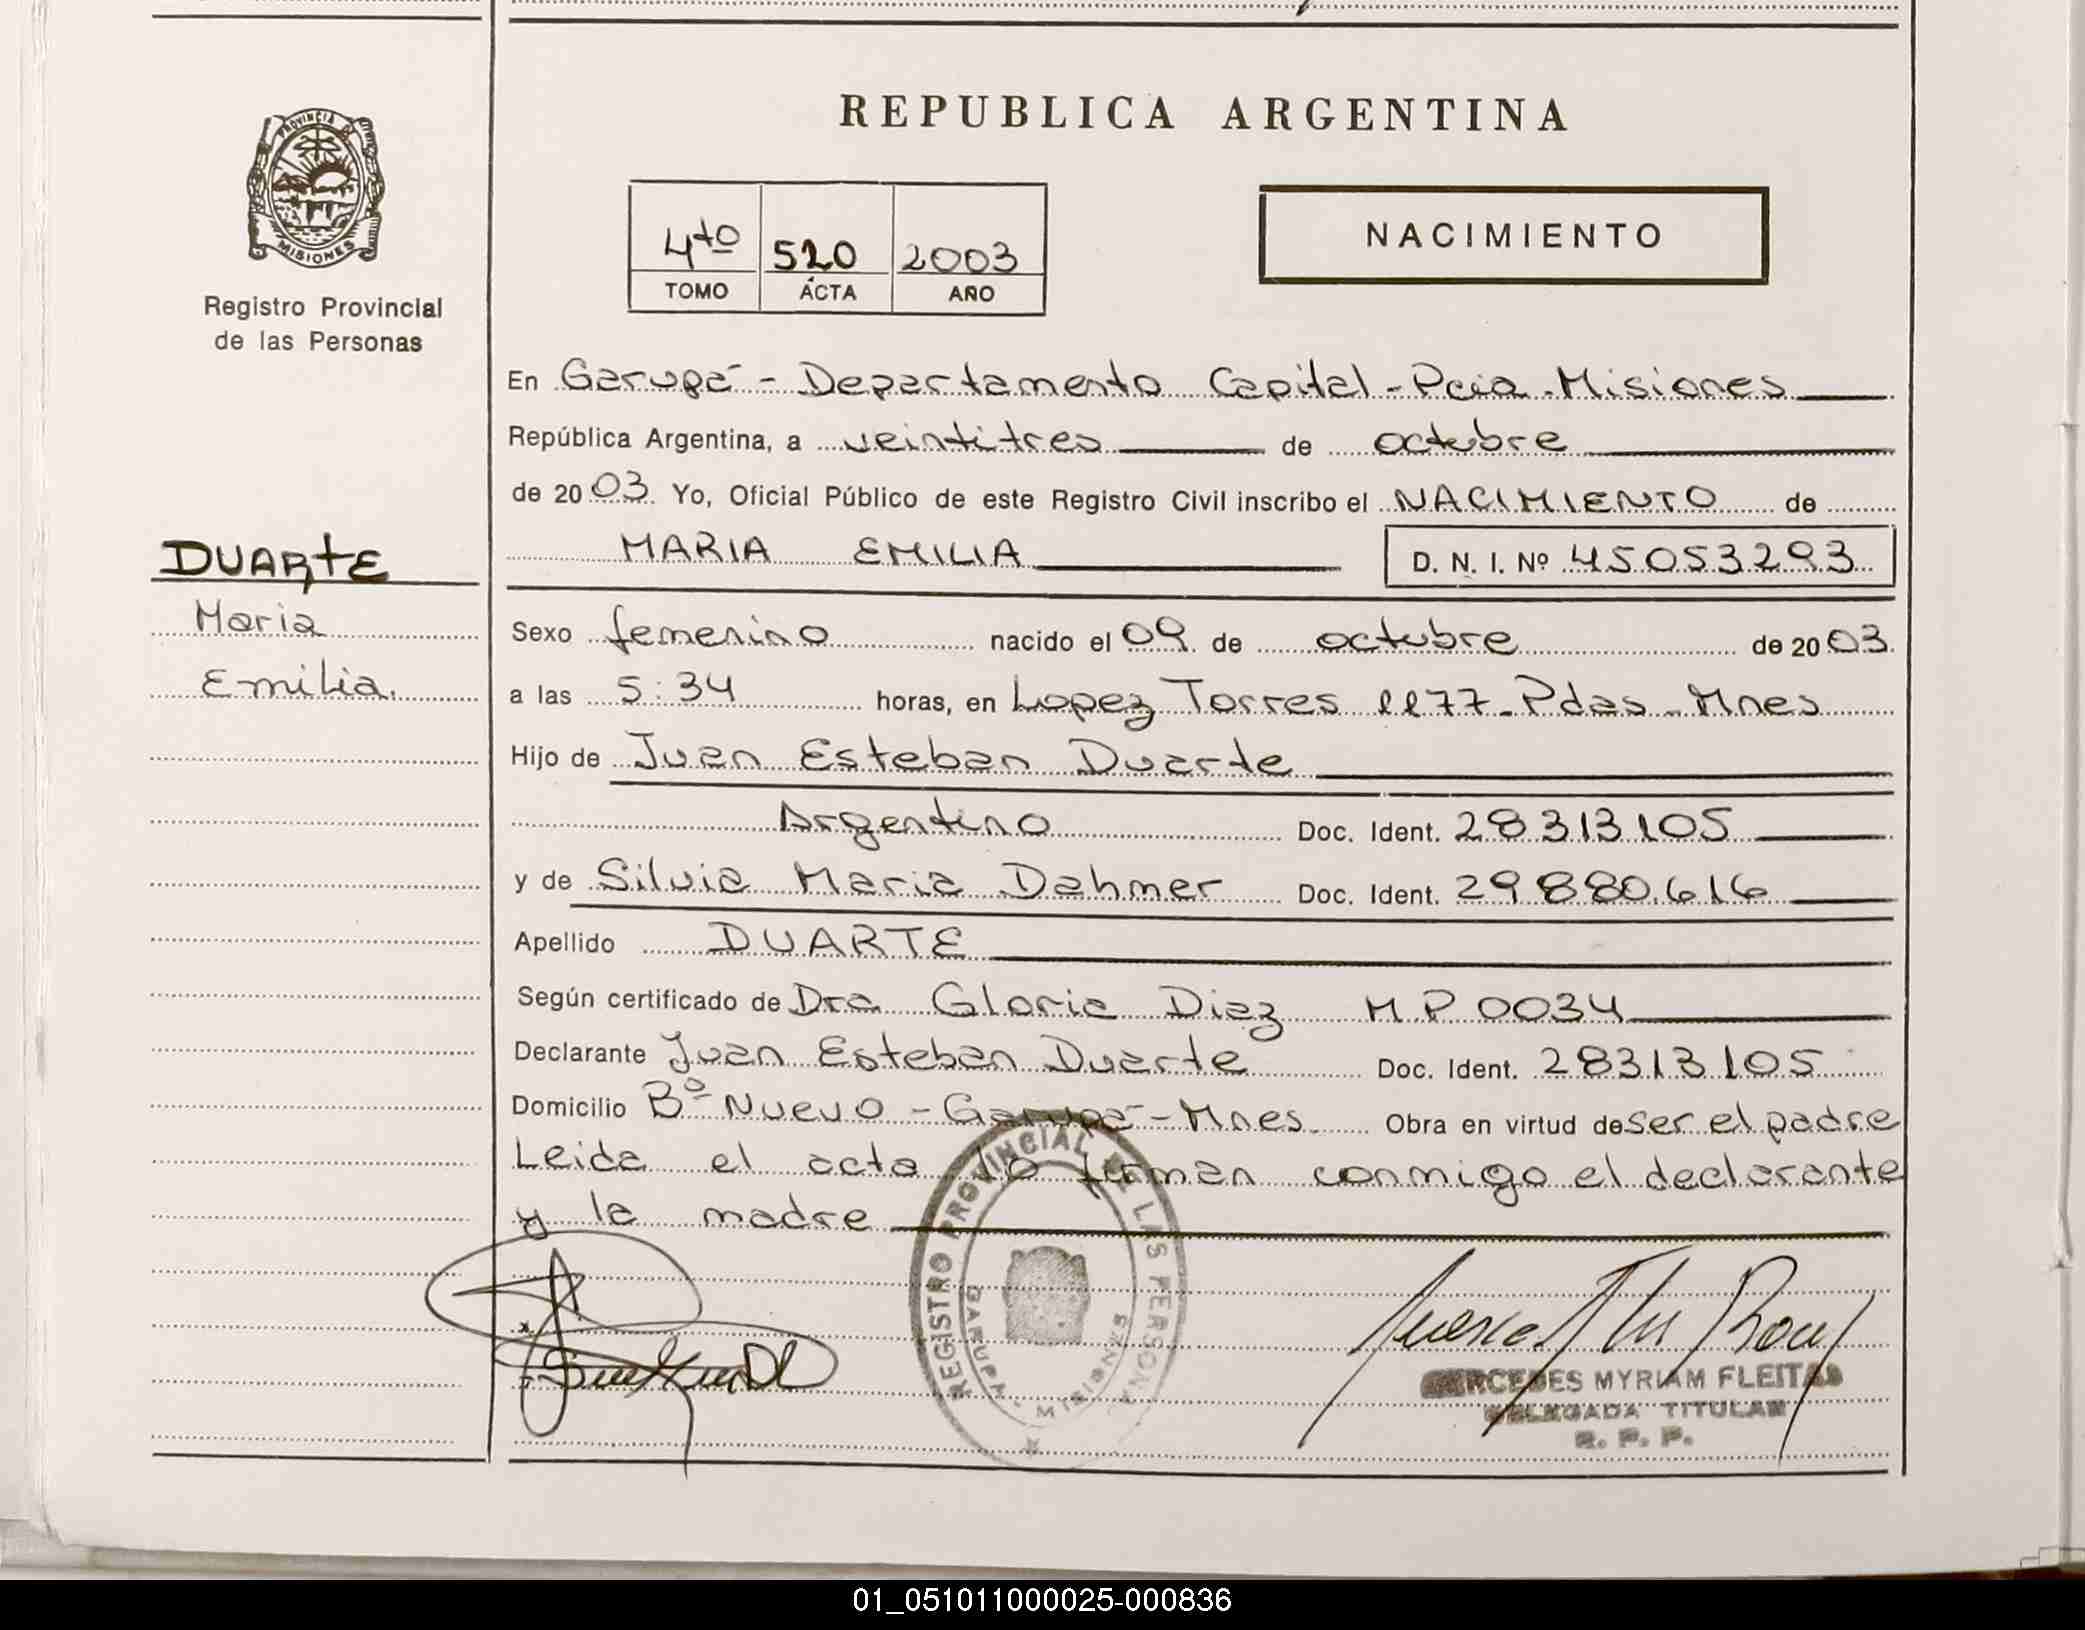 REPUBLICA ARGENTINA
PROVINCIA DE
MISIONES
Registro Provincial
de las Personas
4to 520 2003
TOMO ACTA AÑO
NACIMIENTO
En Garupá - Departamento Capital - Pcia. Misiones
República Argentina, a veintitres de octubre
de 2003. Yo, Oficial Público de este Registro Civil inscribo el NACIMIENTO de
MARIA EMILIA D. N. I. Nº 45053293
DUARTE
Maria
Emilia.
Sexo femenino nacido el 09 de octubre de 2003
a las 5:34 horas, en Lopez Torres 1177 - Pdas - Mnes
Hijo de Juan Esteban Duarte
Argentino Doc. Ident. 28313105
y de Silvia Maria Dahmer Doc. Ident. 29880.616
Apellido DUARTE
Según certificado de Dra Gloria Diaz M.P 0034
Declarante Juan Esteban Duarte Doc. Ident. 28313105
Domicilio Bº Nuevo - Garupá - Mnes. Obra en virtud de ser el padre
Leida el acta lo firman conmigo el declarante
y la madre
REGISTRO PROVINCIAL DE LAS PERSONAS
GARUPA - MISIONES
MERCEDES MYRIAM FLEITAS
DELEGADA TITULAR
R. P. P.
01_051011000025-000836